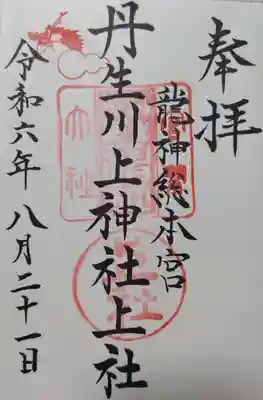 奉拝
龍神総本宮
丹生川上神社上社
令和六年 八月二十一日